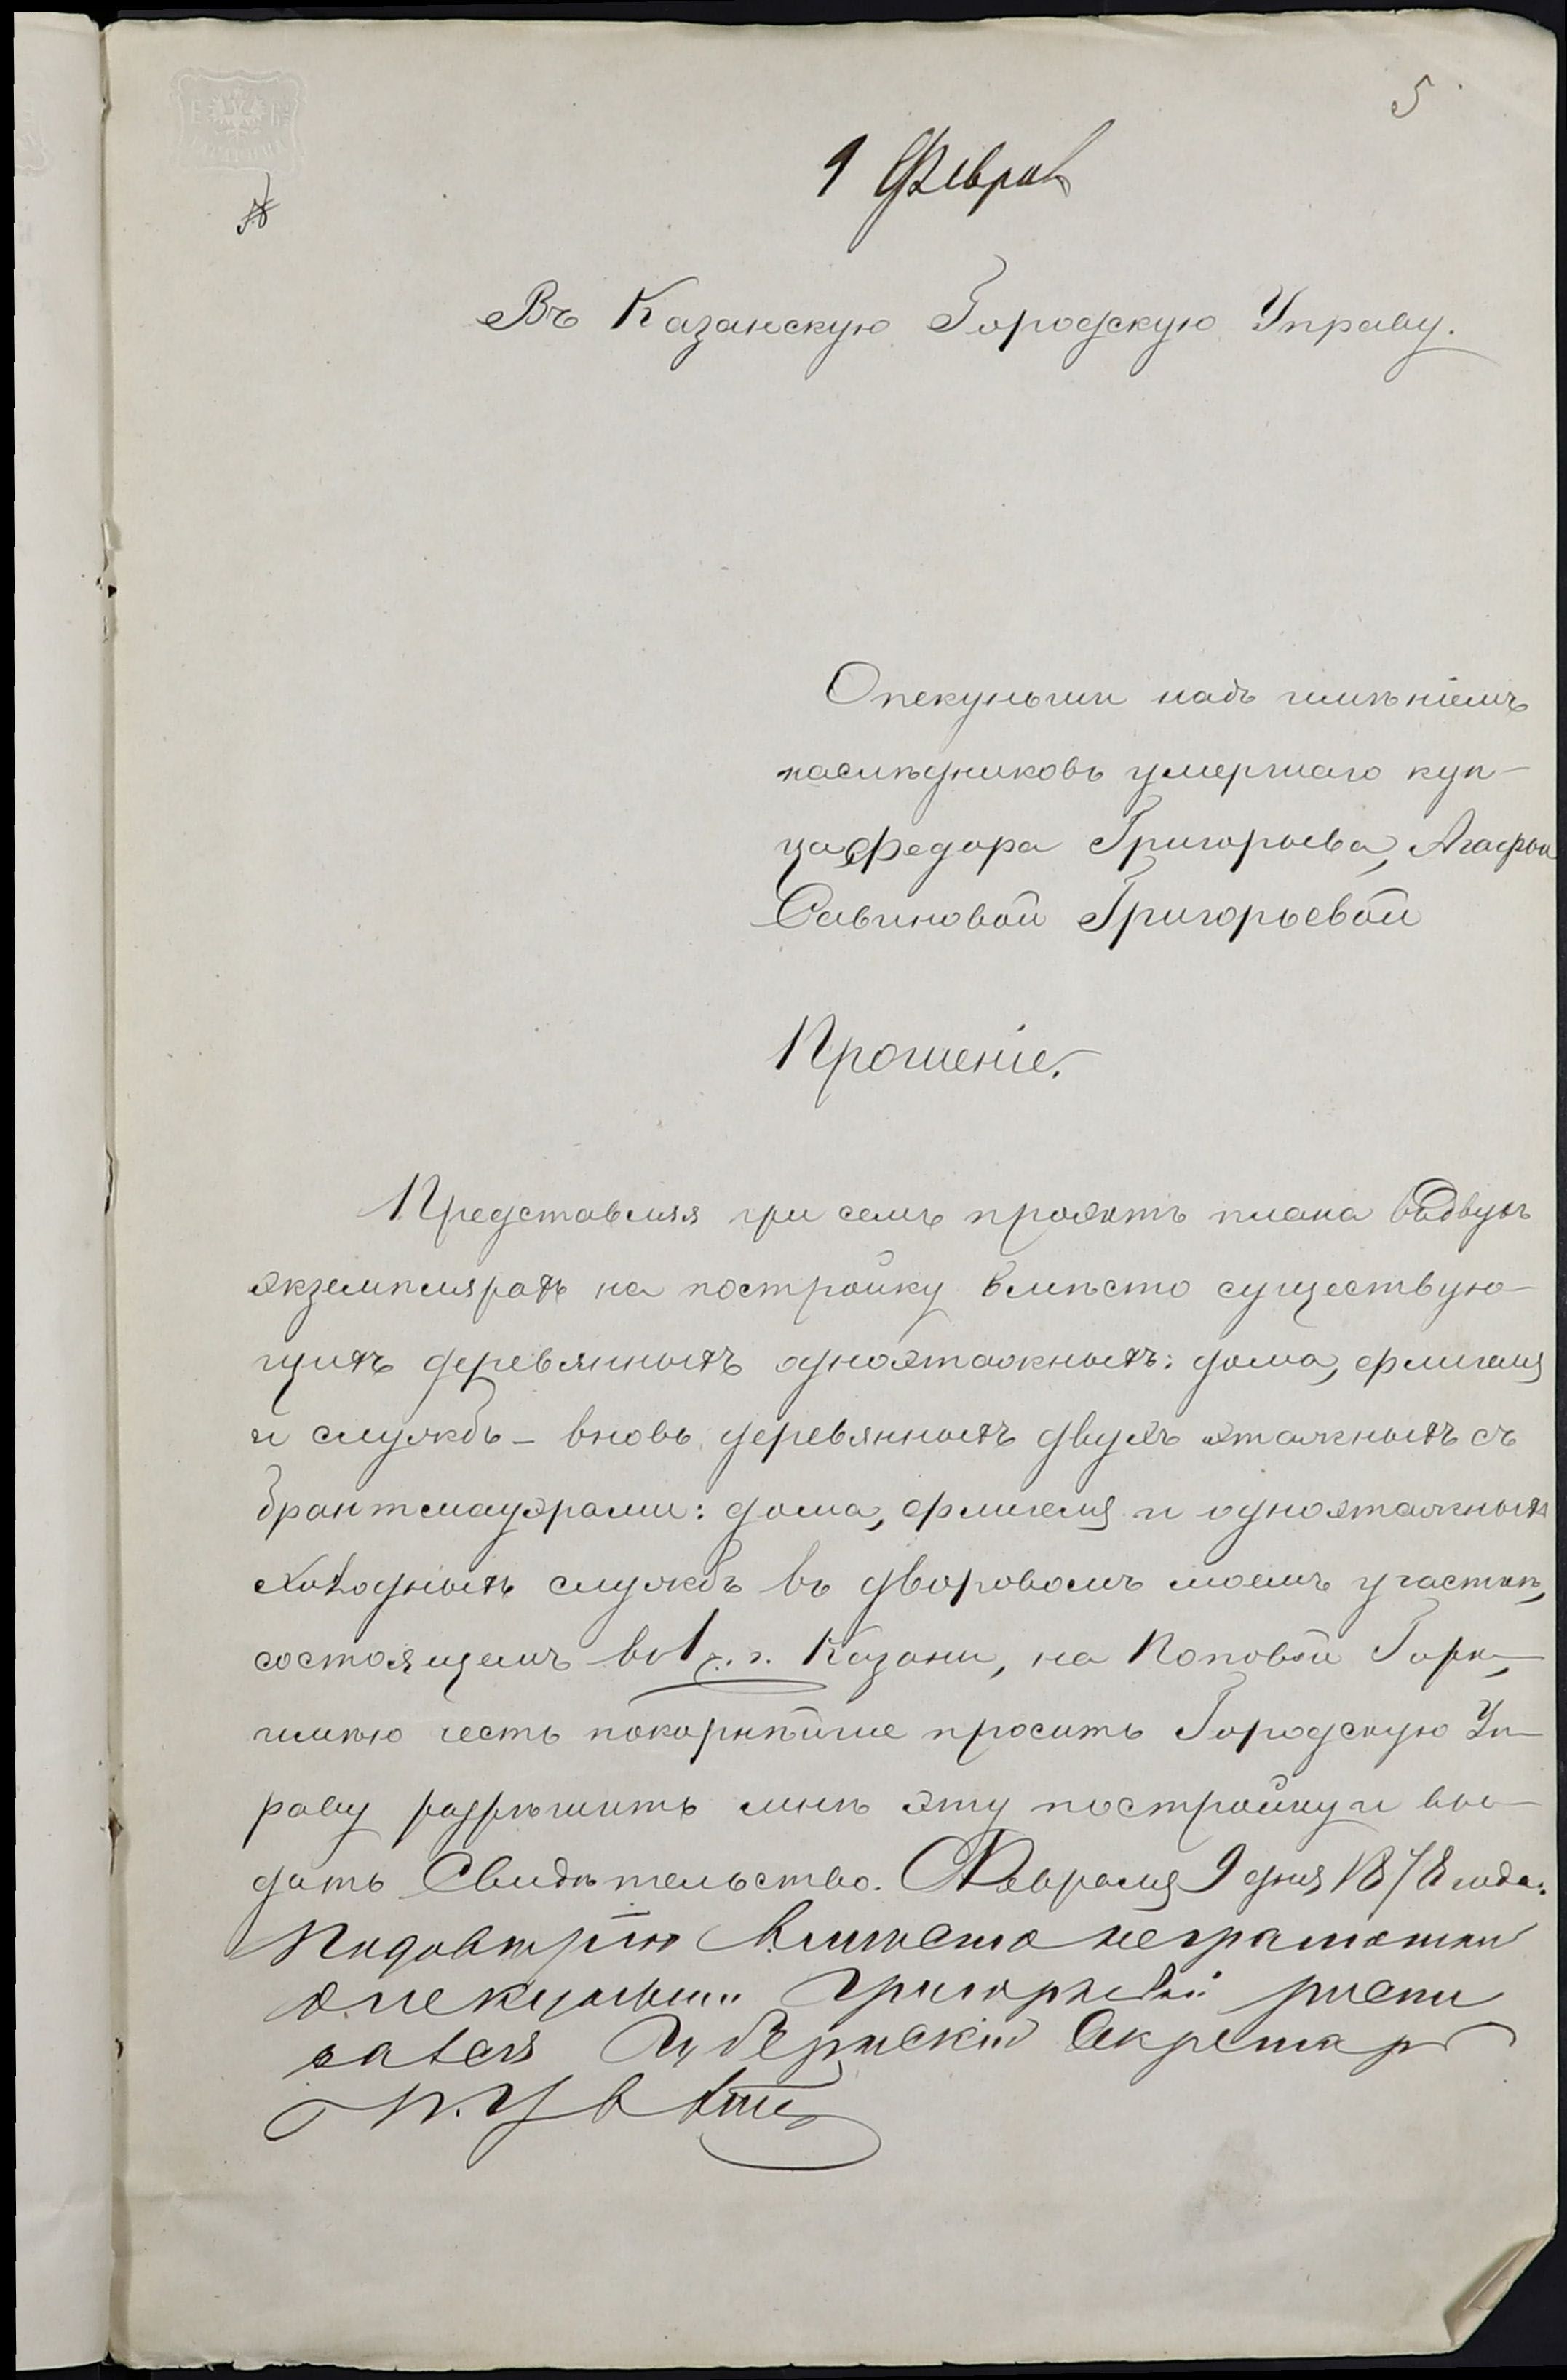 5
9 Феврал
Въ Казанскую Городскую Управу.
Опекунши надъ имѣніемъ
наслѣдниковъ умершаго куп-
ца Федора Григорьева, Агафьи
Савиновой Григорьевой
Прошеніе.
Представляя при семъ проэктъ плана въ двухъ
экземплярахъ на постройку вмѣсто существую-
щихъ деревянныхъ одноэтажныхъ: дома, флигеля
и службъ – вновь деревянныхъ двухъ этажныхъ съ
брантмауэрами: дома, флигеля и одноэтажныхъ
холодныхъ службъ въ дворовомъ моемъ участкѣ,
состоящемъ во 1 ч. г. Казани, на Поповой Горѣ,
имѣю честь покорнѣйше просить Городскую Уп-
раву разрѣшить мнѣ эту постройку и вы-
дать Свидѣтельство. Февраля 9 дня 1878 года.
По довѣрію вмѣсто неграмотной
опекунши Григорьевой роспи
сался Губернскій Секретарь